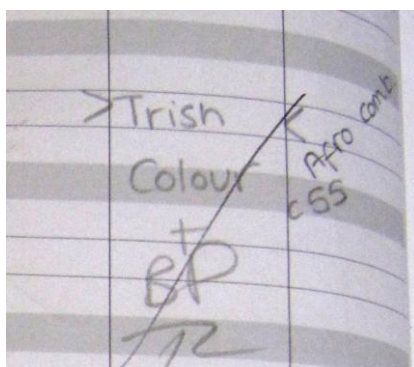 > Trish <
Colour
+
BP
Afro comb
c55